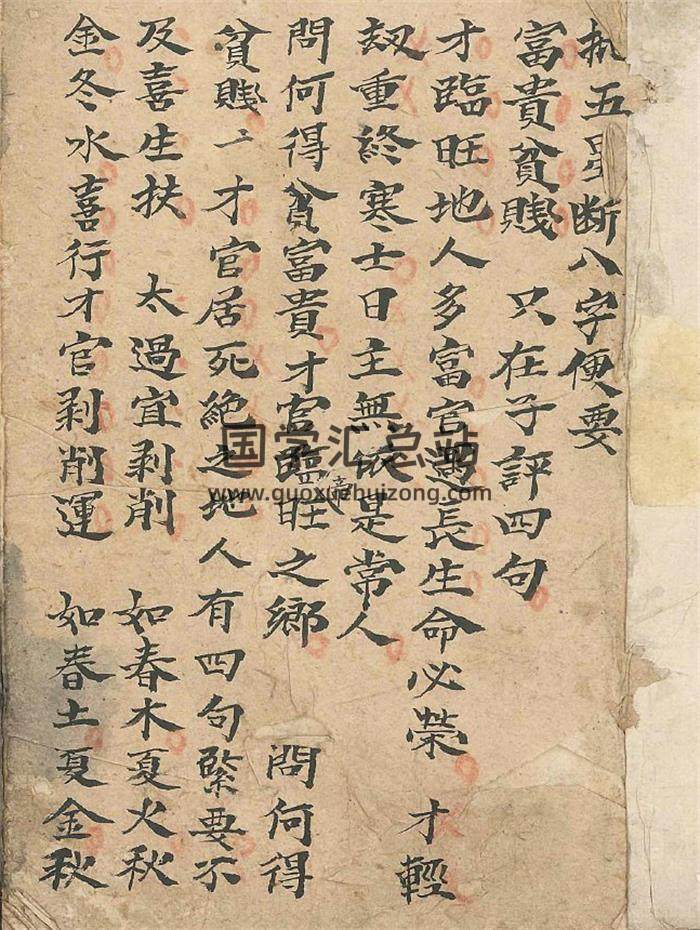 批五星断八字便要
富貴貧賤 只在子評四句
才臨旺地人多富官遇長生命必荣 才輕
刼重終寒士日主無依是常人
問何得貧富貴才官臨旺之鄉 問何得
貧賤才官居死絶之地人有四句緊要不
及喜生扶 太過宜剥削 如春木夏火秋
金冬水喜行才官剥削運 如春土夏金秋
国学汇总站
www.guoxuehuizong.com